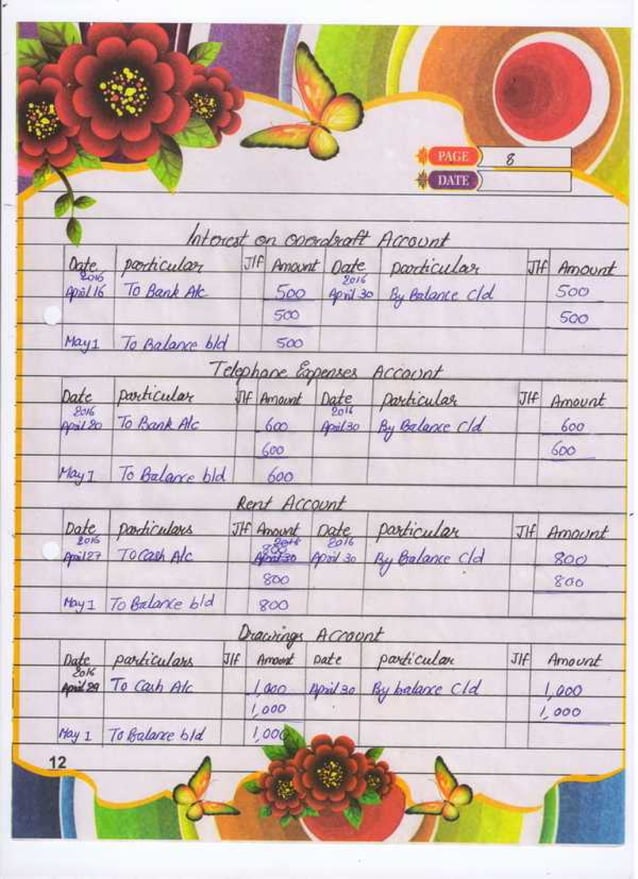 PAGE 8
DATE
Interest on overdraft Account
Date particular J/f Amount Date particular J/f Amount
2016 2016
April 16 To Bank A/c 500 April 30 By Balance c/d 500
500 500
May 1 To Balance b/d 500
Telephone Expenses Account
Date particular J/f Amount Date particular J/f Amount
2016 2016
April 20 To Bank A/c 600 April 30 By Balance c/d 600
600 600
May 1 To Balance b/d 600
Rent Account
Date particulars J/f Amount Date particular J/f Amount
2016 2016 2016
April 27 To Cash A/c 800 April 30 April 30 By Balance c/d 800
800 800
May 1 To Balance b/d 800
Drawings Account
Date particulars J/f Amount Date particular J/f Amount
2016
April 29 To Cash A/c 1,000 April 30 By balance c/d 1,000
1,000 1,000
May 1 To Balance b/d 1,000
12